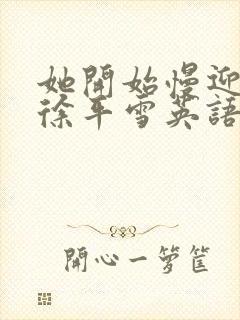 她開始慢迎
徐平雪英語
開心一箩筐